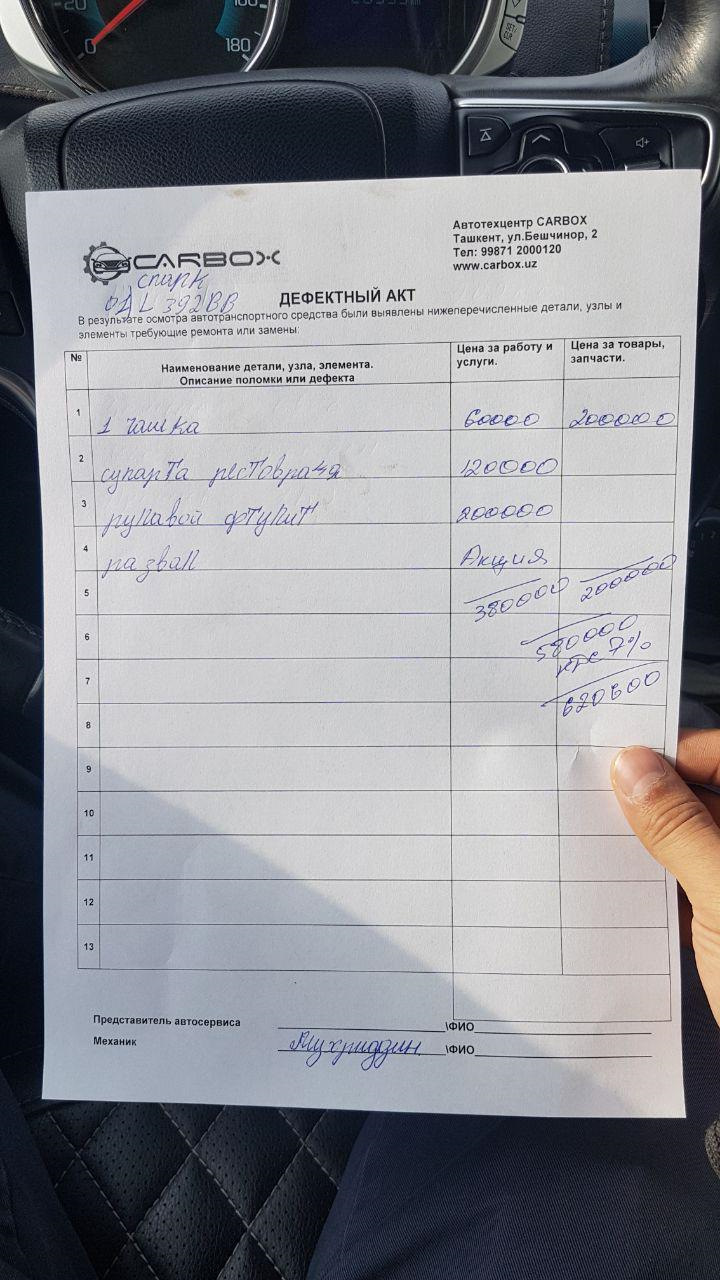 20
0
180
SET/
CLR
CARBOX
Автотехцентр CARBOX
Ташкент, ул.Бешчинор, 2
Тел: 99871 2000120
www.carbox.uz
спарк
01 L 392 BB
ДЕФЕКТНЫЙ АКТ
В результате осмотра автотранспортного средства были выявлены нижеперечисленные детали, узлы и
элементы требующие ремонта или замены:
№ Наименование детали, узла, элемента. Цена за работу и Цена за товары,
Описание поломки или дефекта услуги. запчасти.
1 1 чашка 60000 200000
2 супарта рестоврация 120000
3 рулавой 200000
4 развал Акция
5 380000 200000
6 580000
7%
7 620600
8
9
10
11
12
13
Представитель автосервиса \ФИО
Механик Мухриддин. \ФИО